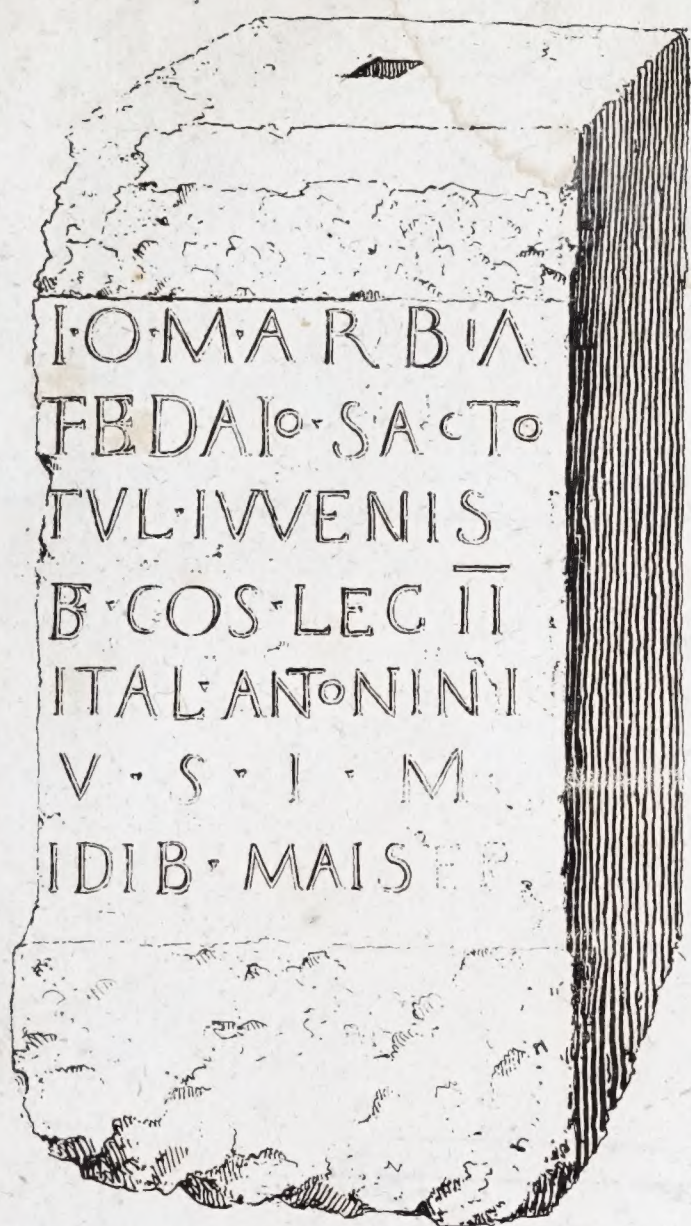 I·O·M·ARBIA
TBEDAIO·SACTO
TVL·IVVENIS
B·COS·LEG II
ITAL·ANTONINI
V·S·I·M
IDIB·MAIS